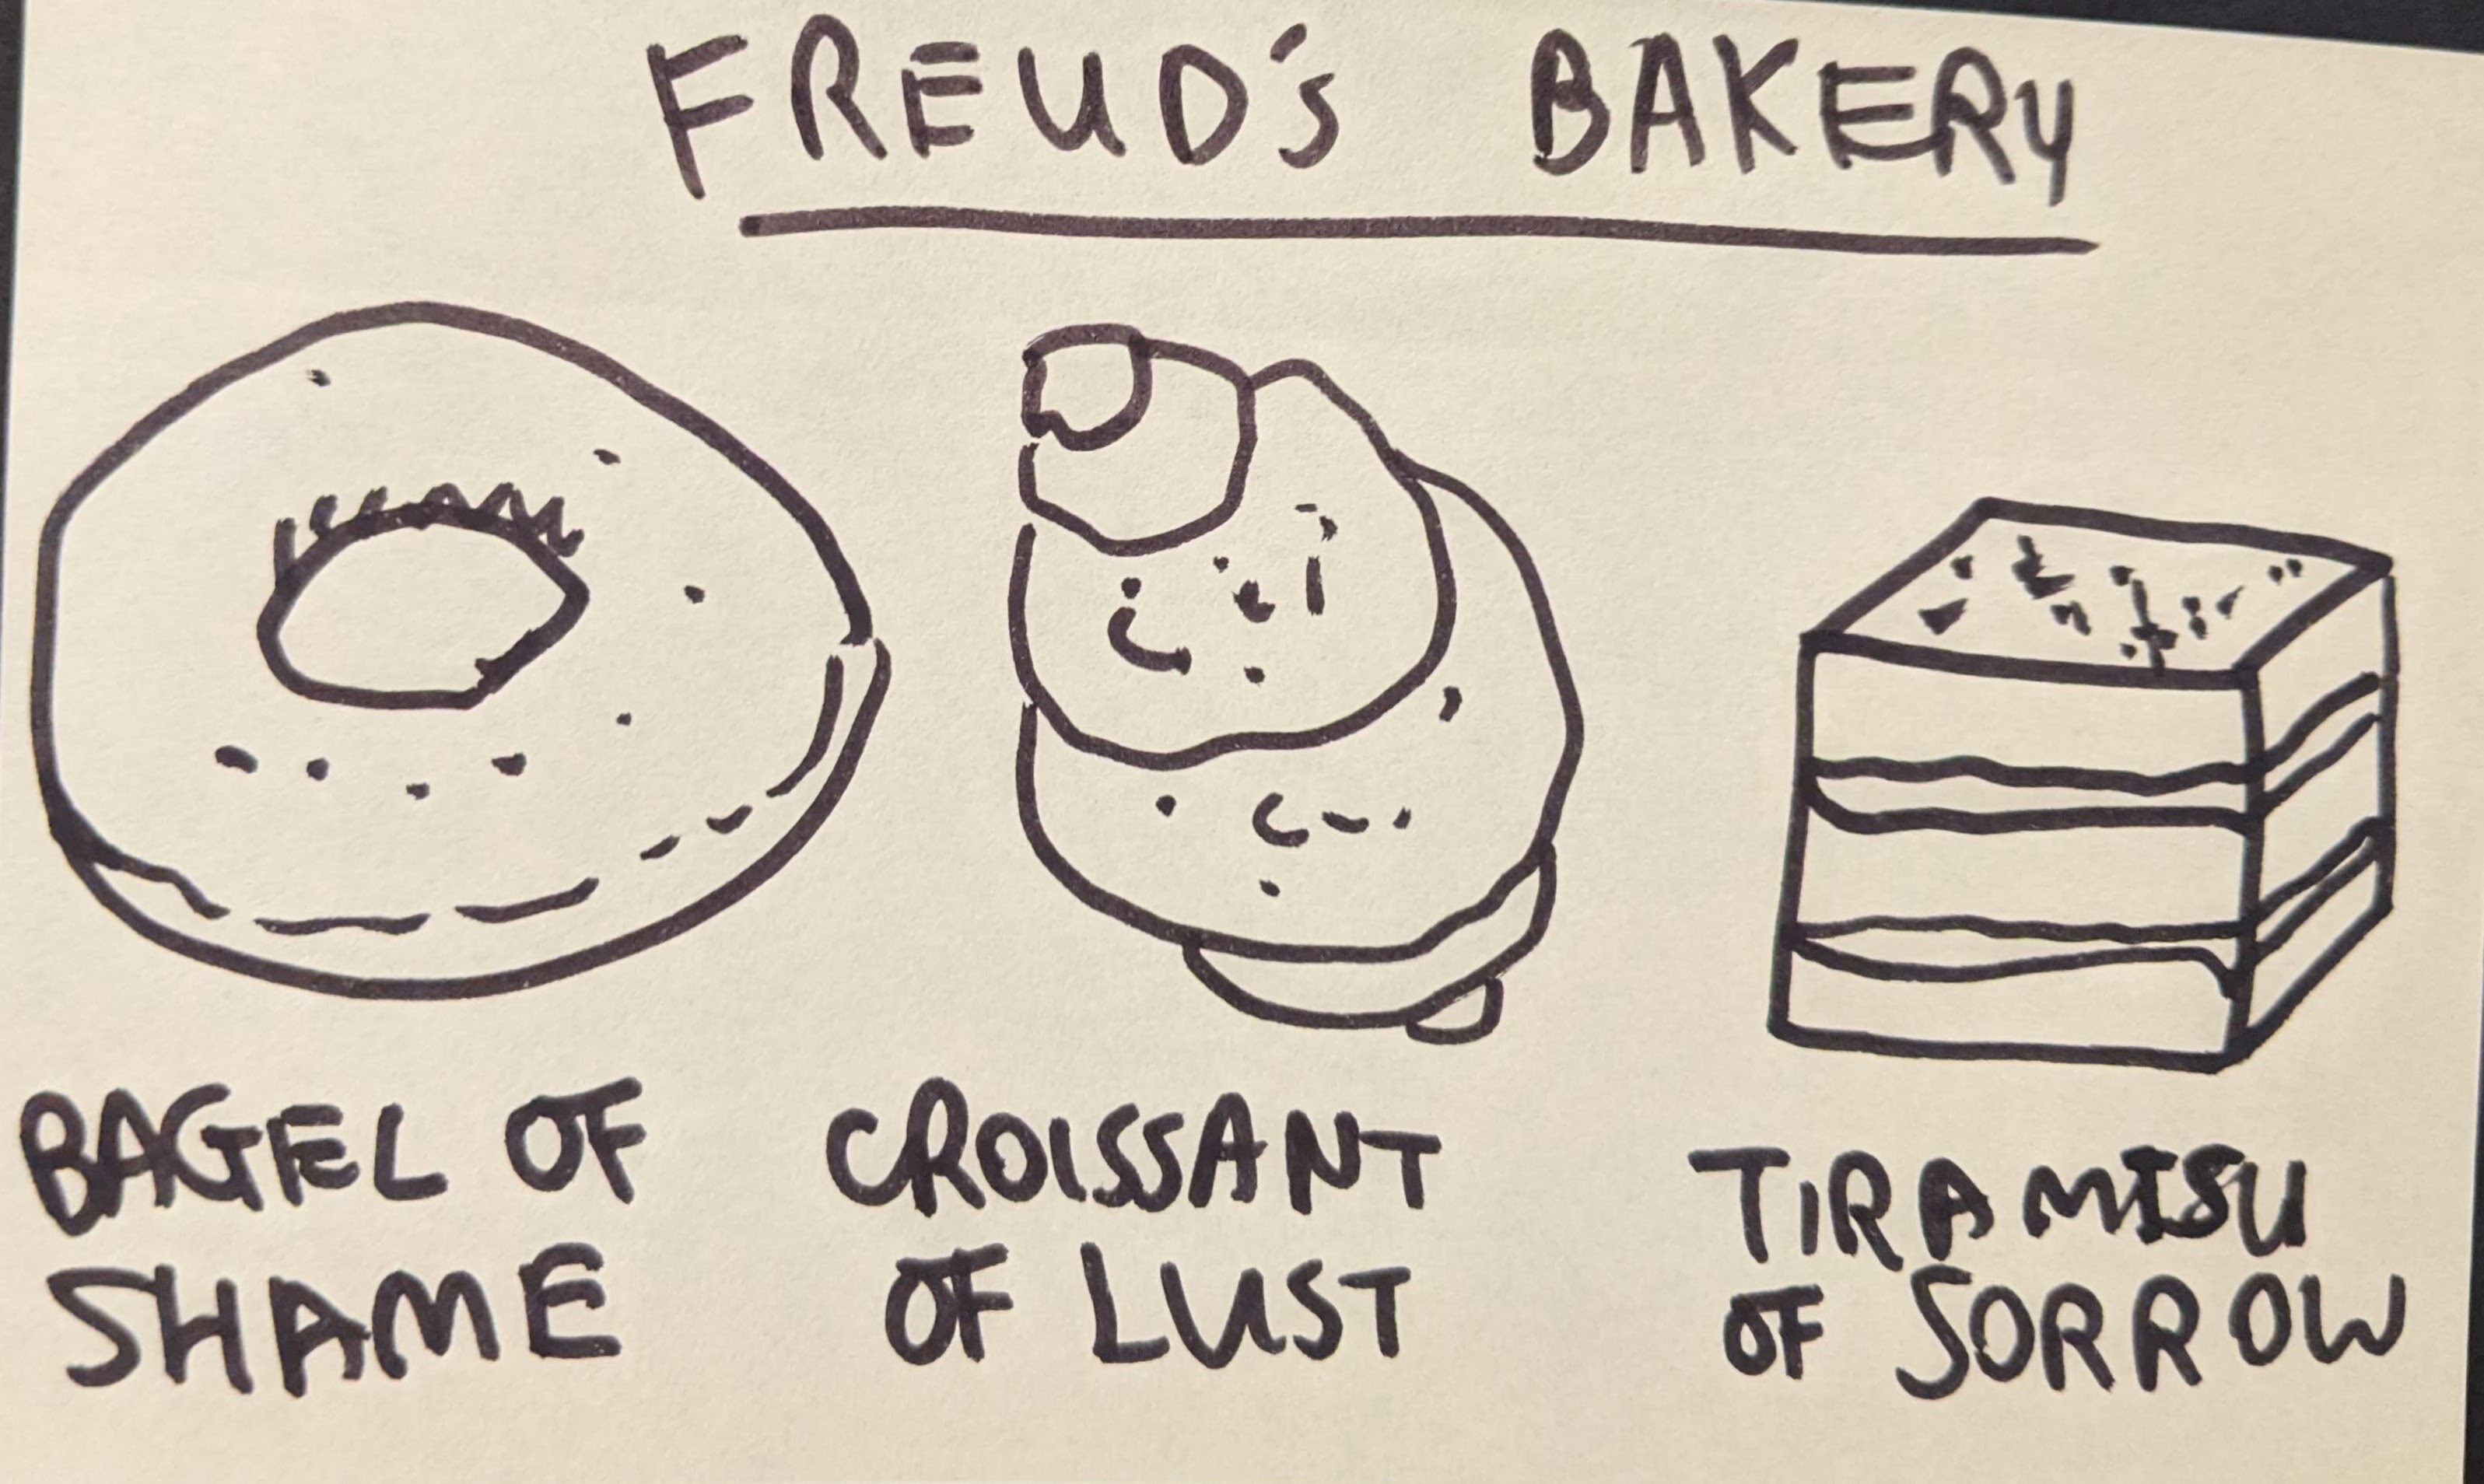 FREUD's BAKERY
BAGEL OF
SHAME
CROISSANT
OF LUST
TIRAMISU
OF SORROW